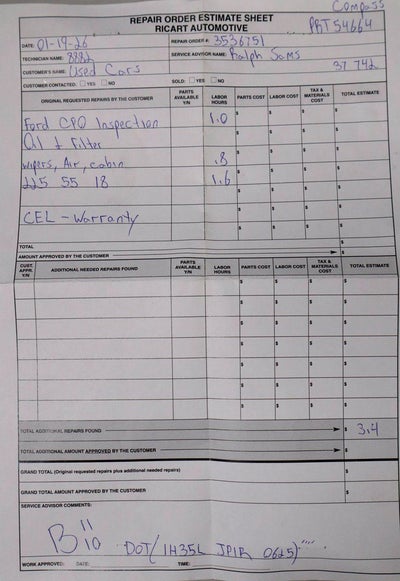 Compass
REPAIR ORDER ESTIMATE SHEET
RICART AUTOMOTIVE
PRT54664
DATE: 01-19-26 REPAIR ORDER #: 3536751
TECHNICIAN NAME: 8882 SERVICE ADVISOR NAME: Ralph Sams
37 742
CUSTOMER'S NAME: Used Cars
CUSTOMER CONTACTED: YES NO SOLD: YES NO
ORIGINAL REQUESTED REPAIRS BY THE CUSTOMER PARTS AVAILABLE Y/N LABOR HOURS PARTS COST LABOR COST TAX & MATERIALS COST TOTAL ESTIMATE
Ford CPO Inspection 1.0 $ $ $ $
Oil & Filter $ $ $ $
wipers, Air, cabin .8 $ $ $ $
225 55 18 1.6 $ $ $ $
$ $ $ $
CEL - Warranty $ $ $ $
TOTAL $
AMOUNT APPROVED BY THE CUSTOMER $
CUST. APPR. Y/N ADDITIONAL NEEDED REPAIRS FOUND PARTS AVAILABLE Y/N LABOR HOURS PARTS COST LABOR COST TAX & MATERIALS COST TOTAL ESTIMATE
$ $ $ $
$ $ $ $
$ $ $ $
$ $ $ $
$ $ $ $
$ $ $ $
$ $ $ $
TOTAL ADDITIONAL REPAIRS FOUND $ 3.4
TOTAL ADDITIONAL AMOUNT APPROVED BY THE CUSTOMER $
GRAND TOTAL (Original requested repairs plus additional needed repairs) $
GRAND TOTAL AMOUNT APPROVED BY THE CUSTOMER $
SERVICE ADVISOR COMMENTS:
DOT(1H35L JP1R 0625)
WORK APPROVED: DATE: TIME: